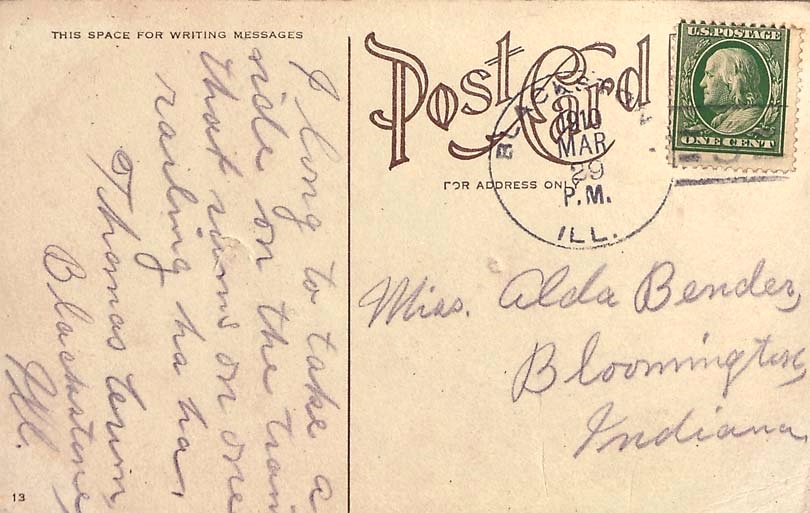 THIS SPACE FOR WRITING MESSAGES
I long to take a
ride on the train
that runs on one
railing ha ha
Thomas
Blackstone,
Ill.
13
Post Card
FOR ADDRESS ONLY
BLACKSTONE
1910
MAR
29
P.M.
ILL.
U.S. POSTAGE
ONE CENT
Miss. Alda Bender,
Bloomington,
Indiana,